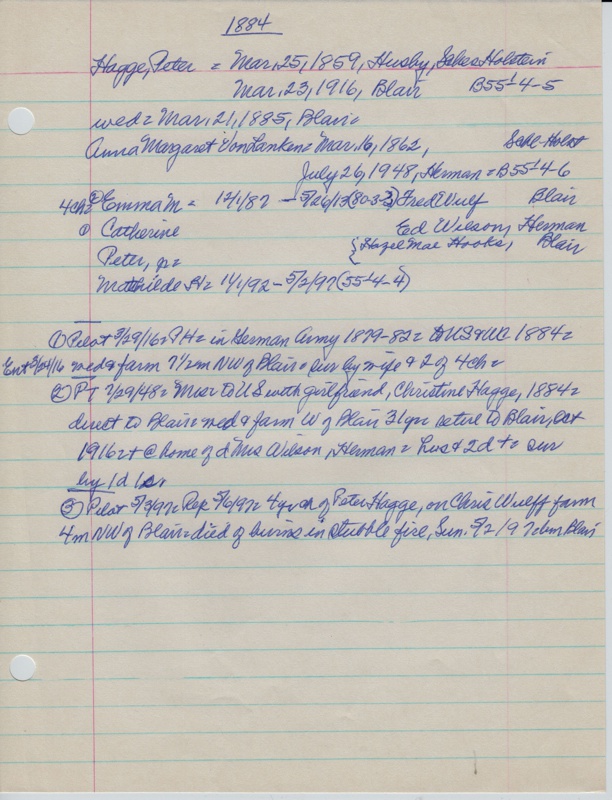 1884
Hagge, Peter = Mar. 25, 1859, Husby, Holstein
Mar. 23, 1916, Blair B55-4-5
wed = Mar. 21, 1885, Blair =
Anna Margaret Von Lanken = Mar. 16, 1862,
July 26, 1948, Herman = B55-4-6
4ch = Emma M = 12/1/87 - Fred Wulf Blair
① Catherine Ed Wilson, Herman
Peter, jr = {Hazel Mae Hooks, Blair
Mathilde = 11/1/92 - 5/2/97 (55-4-4)
① Pilot 3/29/16 = PH = in German Army 1879-82 = to US & WC 1884 =
Ent 3/24/16 wed & farm 7 1/2 m NW of Blair = sur by wife & 2 of 4 ch =
② PT 7/29/48 = Misr to US with girlfriend, Christine Hagge, 1884 =
direct to Blair = wed & farm W of Blair 31 yr = retire to Blair, Oct
1916 = + @ home of d Mrs Wilson, Herman = hus & 2d + = sur
by 1d 1s.
③ Pilot 5/3/97 = Rep 5/6/97 = 4 yr ch of Peter Hagge, on Chris Wulff farm
4 m NW of Blair = died of burns in stubble fire, Sun. 5/2/97 = bur Blair